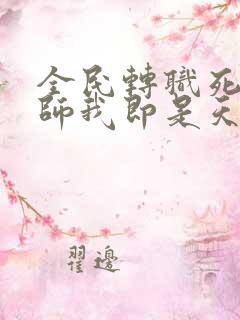 全民轉職死
師我即是天
翟邊